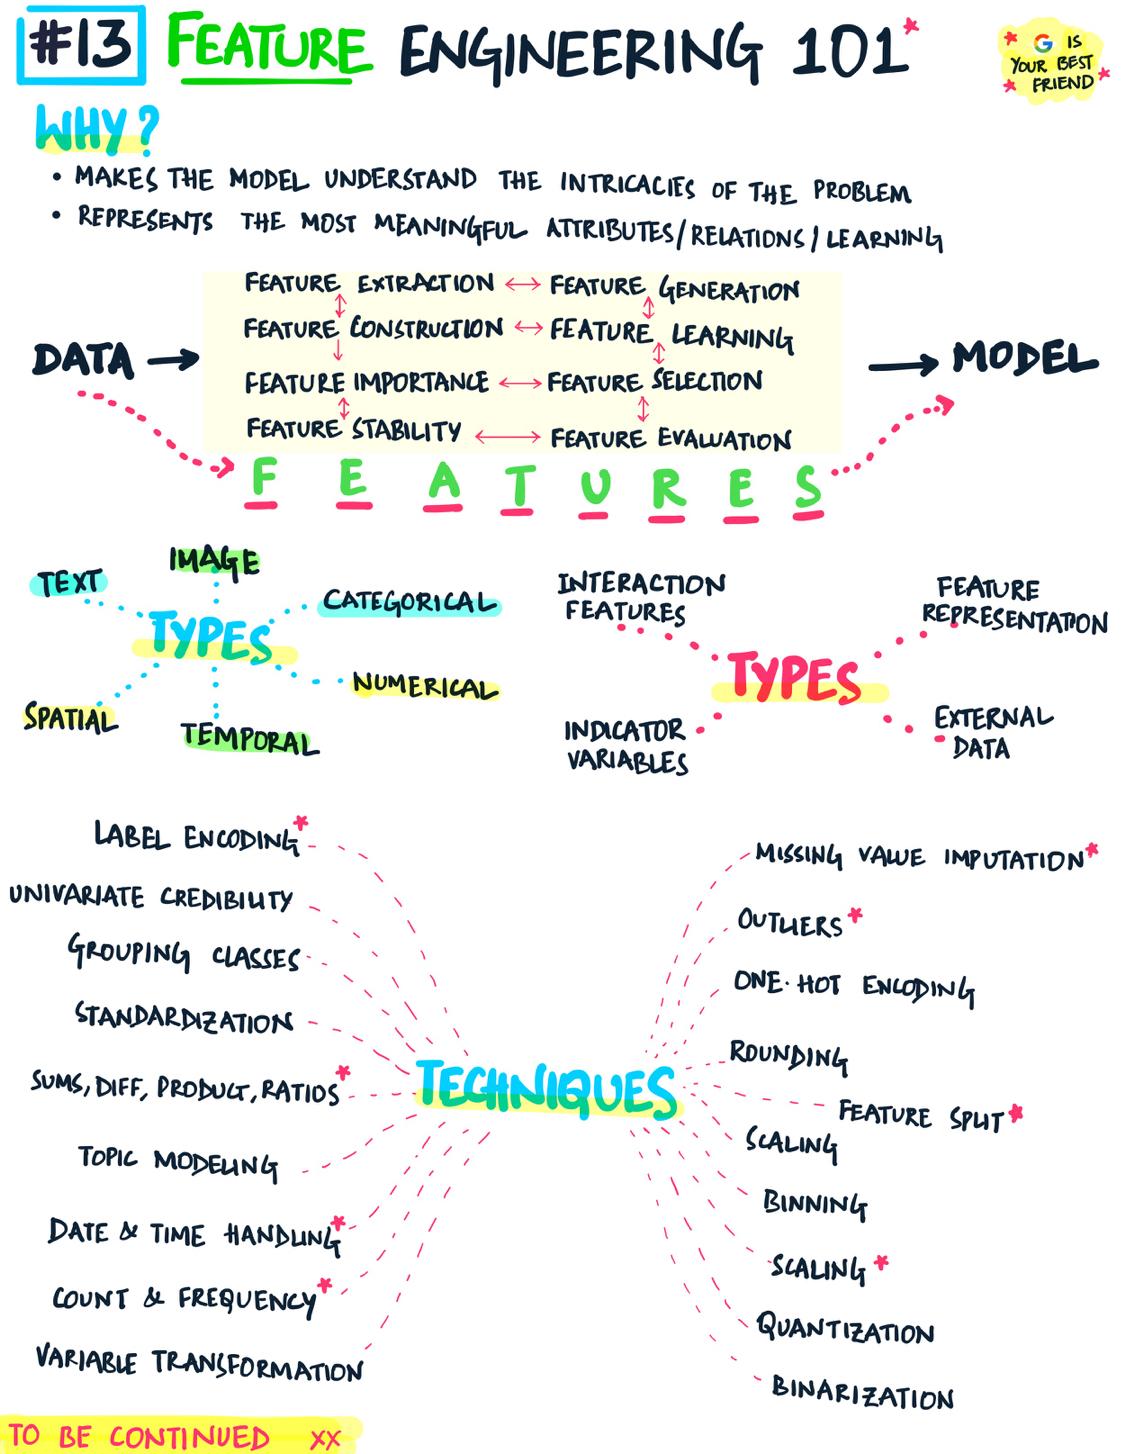 #13 FEATURE ENGINEERING 101*
G IS
YOUR BEST
FRIEND
WHY?
• MAKES THE MODEL UNDERSTAND THE INTRICACIES OF THE PROBLEM
• REPRESENTS THE MOST MEANINGFUL ATTRIBUTES/RELATIONS/LEARNING
FEATURE EXTRACTION ↔ FEATURE GENERATION
FEATURE CONSTRUCTION ↔ FEATURE LEARNING
DATA → → MODEL
FEATURE IMPORTANCE ↔ FEATURE SELECTION
FEATURE STABILITY ↔ FEATURE EVALUATION
F E A T U R E S
TEXT
IMAGE
CATEGORICAL
TYPES
NUMERICAL
SPATIAL
TEMPORAL
INTERACTION
FEATURES
FEATURE
REPRESENTATION
TYPES
INDICATOR
VARIABLES
EXTERNAL
DATA
LABEL ENCODING*
UNIVARIATE CREDIBILITY
GROUPING CLASSES
STANDARDIZATION
SUMS, DIFF, PRODUCT, RATIOS*
TOPIC MODELING
DATE & TIME HANDLING*
COUNT & FREQUENCY*
VARIABLE TRANSFORMATION
TECHNIQUES
MISSING VALUE IMPUTATION*
OUTLIERS*
ONE-HOT ENCODING
ROUNDING
FEATURE SPLIT*
SCALING
BINNING
SCALING*
QUANTIZATION
BINARIZATION
TO BE CONTINUED XX